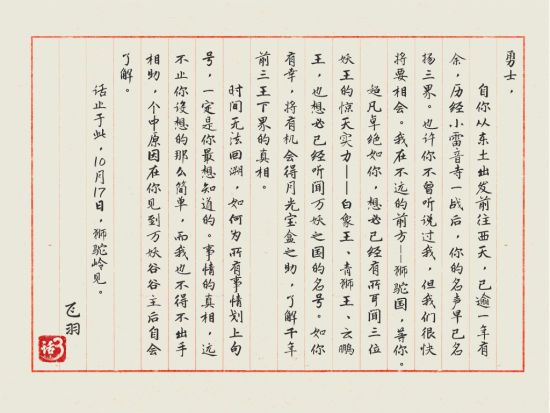 勇士，
自你从东土出发前往西天，已逾一年有
余，历经小雷音寺一战后，你的名声早已名
扬三界。也许你不曾听说过我，但我们很快
将要相会。我在不远的前方——狮驼国，等你。
超凡卓绝如你，想必已经有所耳闻三位
妖王的惊天实力——白象王、青狮王、云鹏
王，也想必已经听闻万妖之国的名号。如你
有幸，将有机会得月光宝盒之助，了解千年
前三王下界的真相。
时间无法回溯，如何为所有事情划上句
号，一定是你最想知道的。事情的真相，远
不止你设想的那么简单，而我也不得不出手
相助，个中原因在你见到万妖谷谷主后自会
了解。
话止于此，10月17日，狮驼岭见。
飞羽
话3